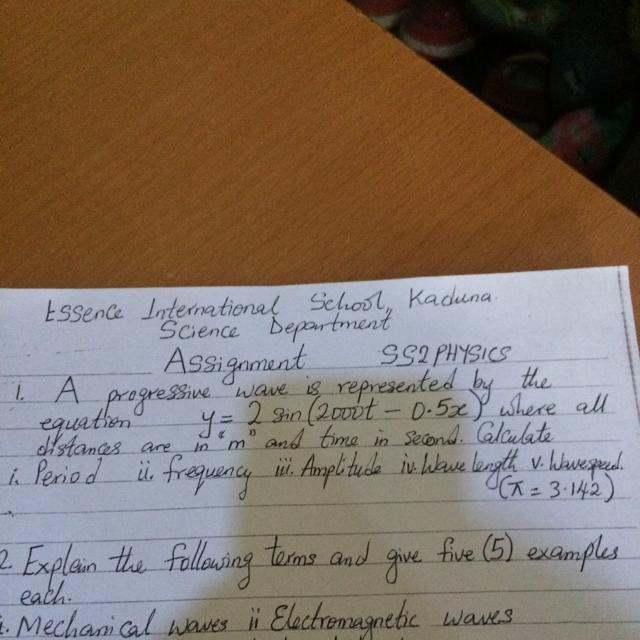 Essence International School, Kaduna.
Science Department
Assignment SS2 PHYSICS
1. A progressive wave is represented by the
equation y = 2 sin (2000t - 0.5x) where all
distances are in "m" and time in second. Calculate
i. Period ii. frequency iii. Amplitude iv. Wave length v. Wavespeed.
(π = 3.142)
2. Explain the following terms and give five (5) examples
each.
i. Mechanical waves ii Electromagnetic waves